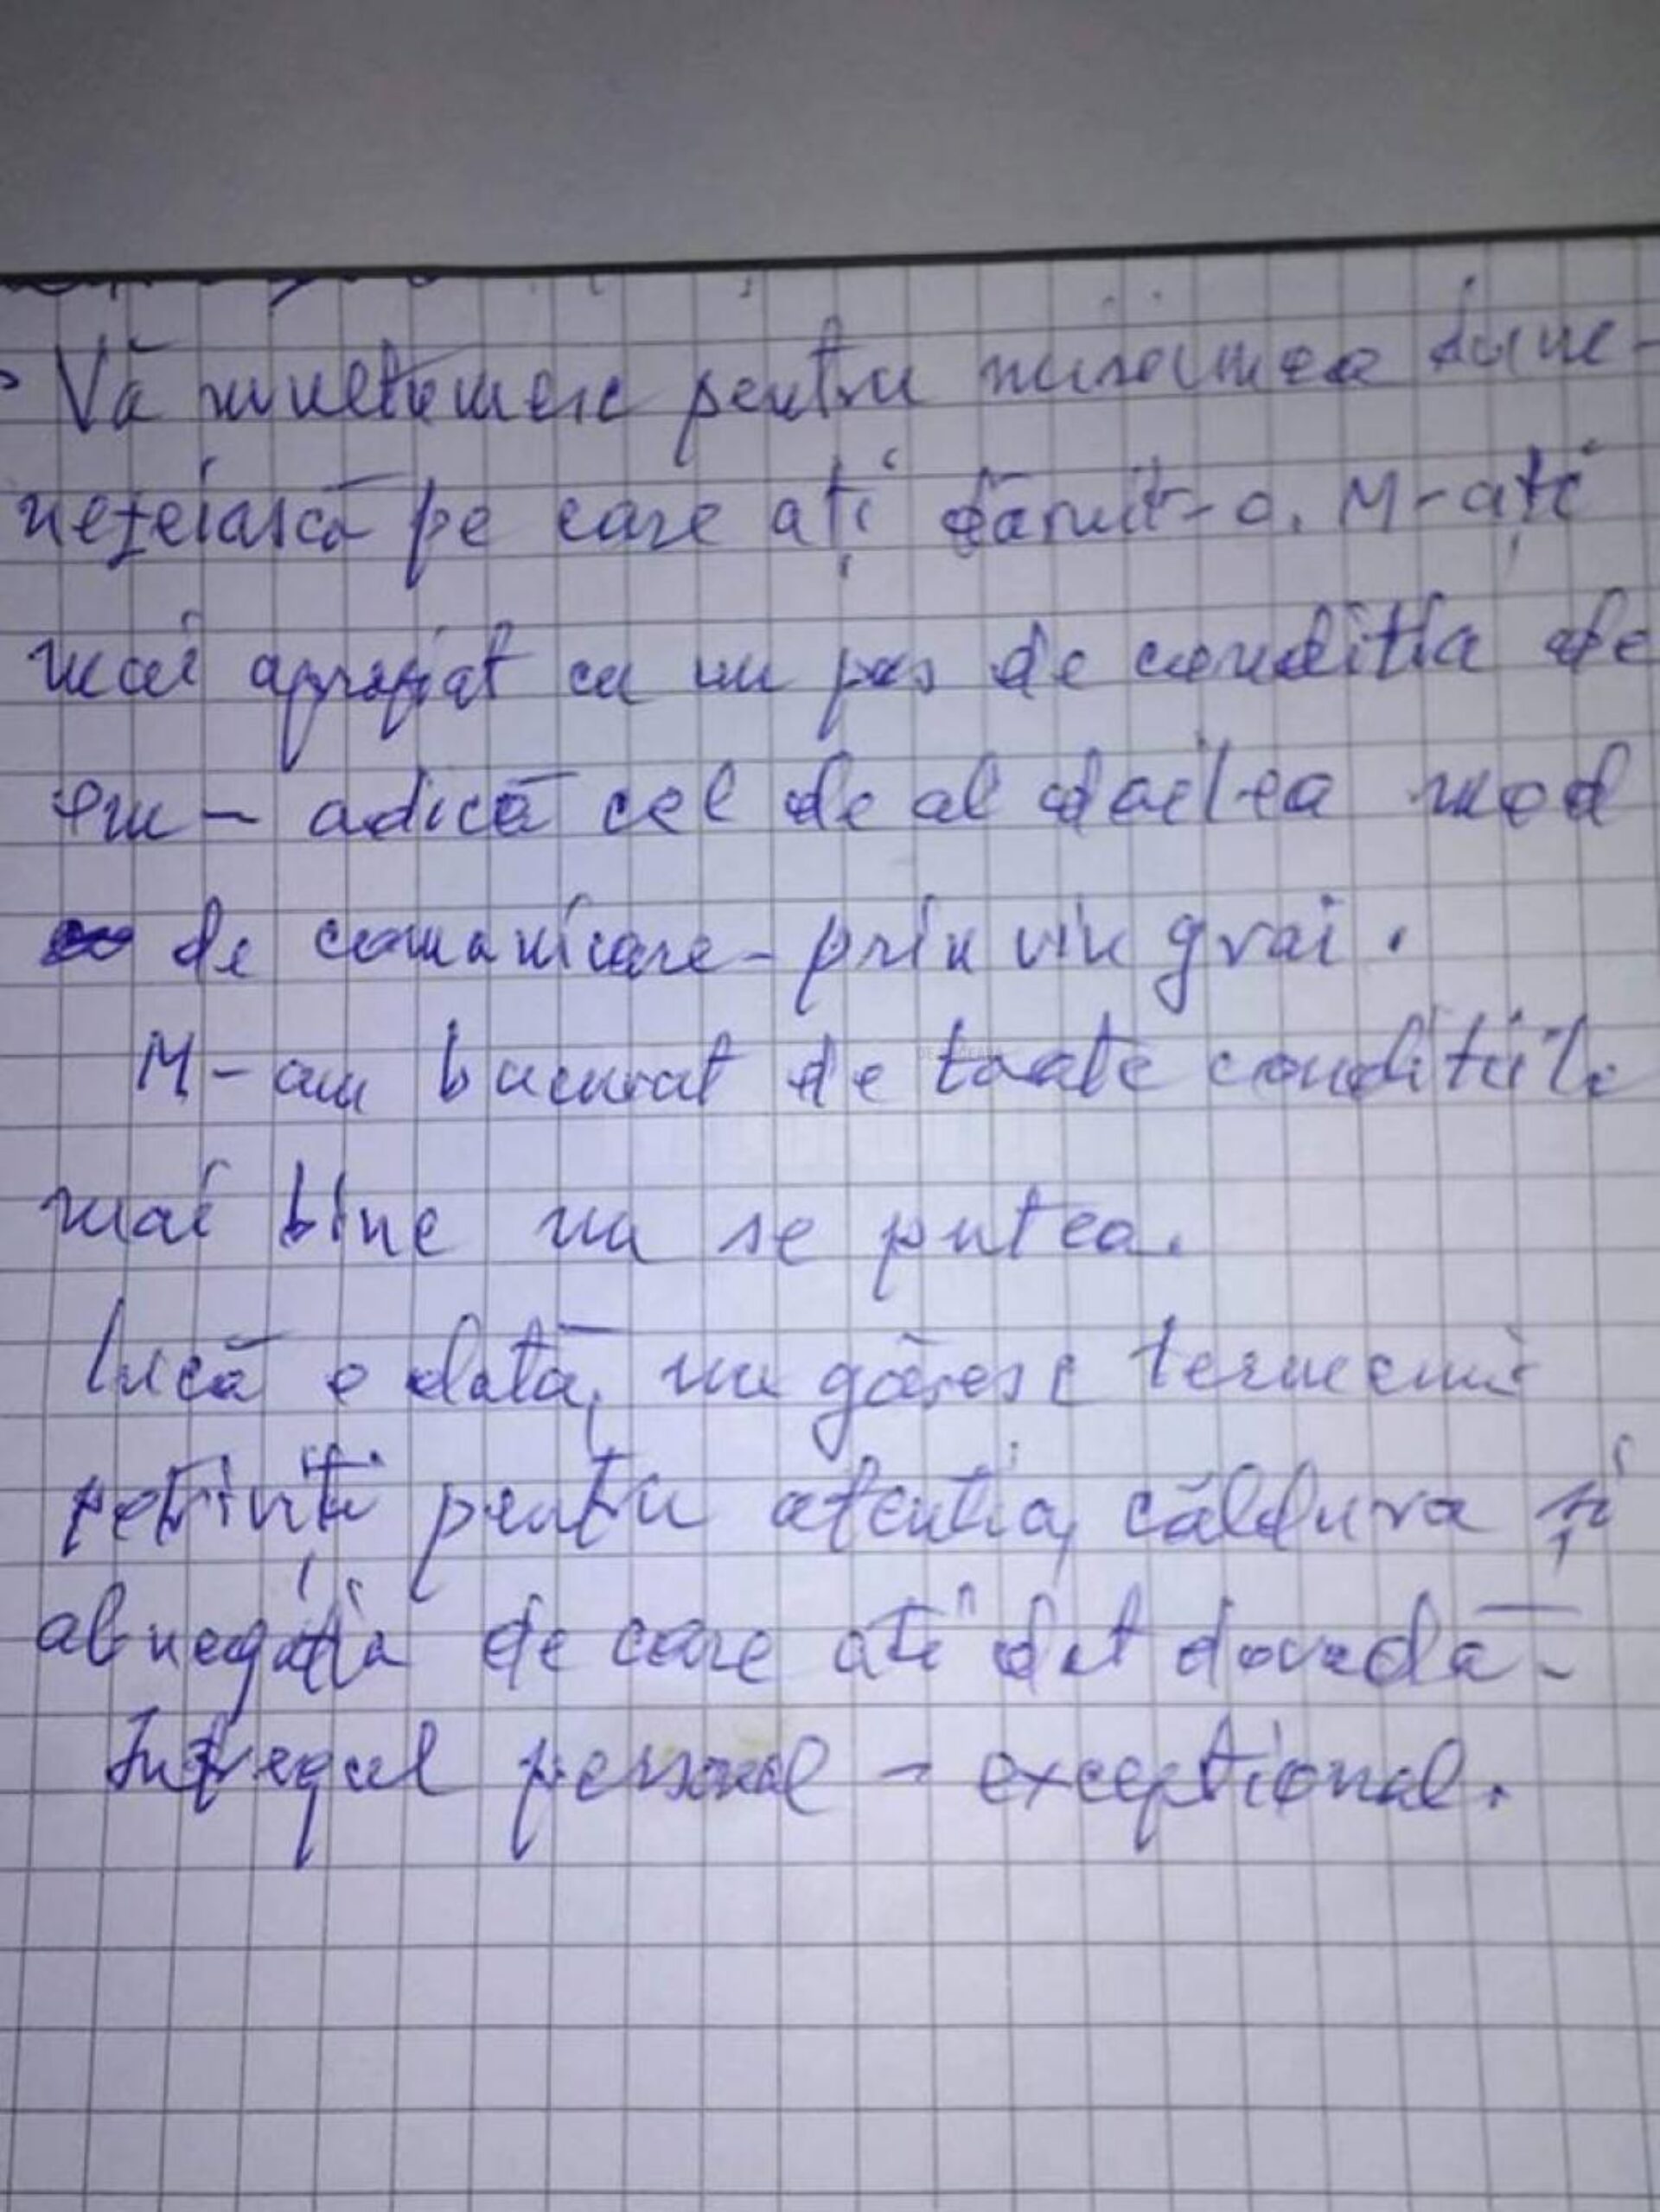 Vă mulțumesc pentru minunea dume-
nezeiască pe care ați dăruit-o. M-ați
mai apropiat cu un pas de conditia de
om - adică cel de al doilea mod
de comunicare - prin viu grai.
M-am bucurat de toate conditiile
mai bine nu se putea.
Încă o dată, nu găsesc termenii
potriviți pentru atentia, căldura și
abnegația de care ati dat dovadă -
Întregul personal - exceptional.